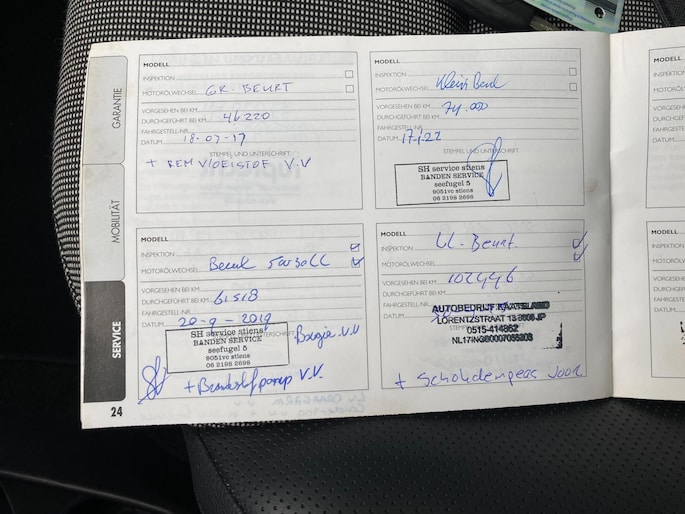 GARANTIE
MOBILITÄT
SERVICE
24
MODELL
INSPEKTION
MOTORÖLWECHSEL GR. BEURT
VORGESEHEN BEI KM
DURCHGEFÜHRT BEI KM 46220
FAHRGESTELL-NR.
DATUM 18-07-17
STEMPEL UND UNTERSCHRIFT
+ REMVLOEISTOF V.V
MODELL
INSPEKTION
MOTORÖLWECHSEL Klein
VORGESEHEN BEI KM
DURCHGEFÜHRT BEI KM 74.000
FAHRGESTELL-NR.
DATUM 17-1-22
STEMPEL UND UNTERSCHRIFT
SH service stiens
BANDEN SERVICE
seefugel 5
9051vc stiens
06 2198 2698
MODELL
INSPEKTION
MOTORÖLWECHSEL Beurt
VORGESEHEN BEI KM
DURCHGEFÜHRT BEI KM 61518
FAHRGESTELL-NR.
DATUM 20-9-2019
SH service stiens
BANDEN SERVICE
seefugel 5
9051vc stiens
06 2198 2698
Bougie V.V
+ Brandstofpomp V.V.
MODELL
INSPEKTION
MOTORÖLWECHSEL Kl. Beurt
VORGESEHEN BEI KM
DURCHGEFÜHRT BEI KM 102446
FAHRGESTELL-NR.
DATUM
AUTOBEDRIJF KAATSLAND
LORENTZSTRAAT 13 8606 JP
0515-414852
+ Schokdempers voor
MODELL
INSPEKTION
MOTORÖLWECHSEL
VORGESEHEN BEI KM
FAHRGESTELL-NR.
DATUM
MODELL
INSPEKTION
DATUM